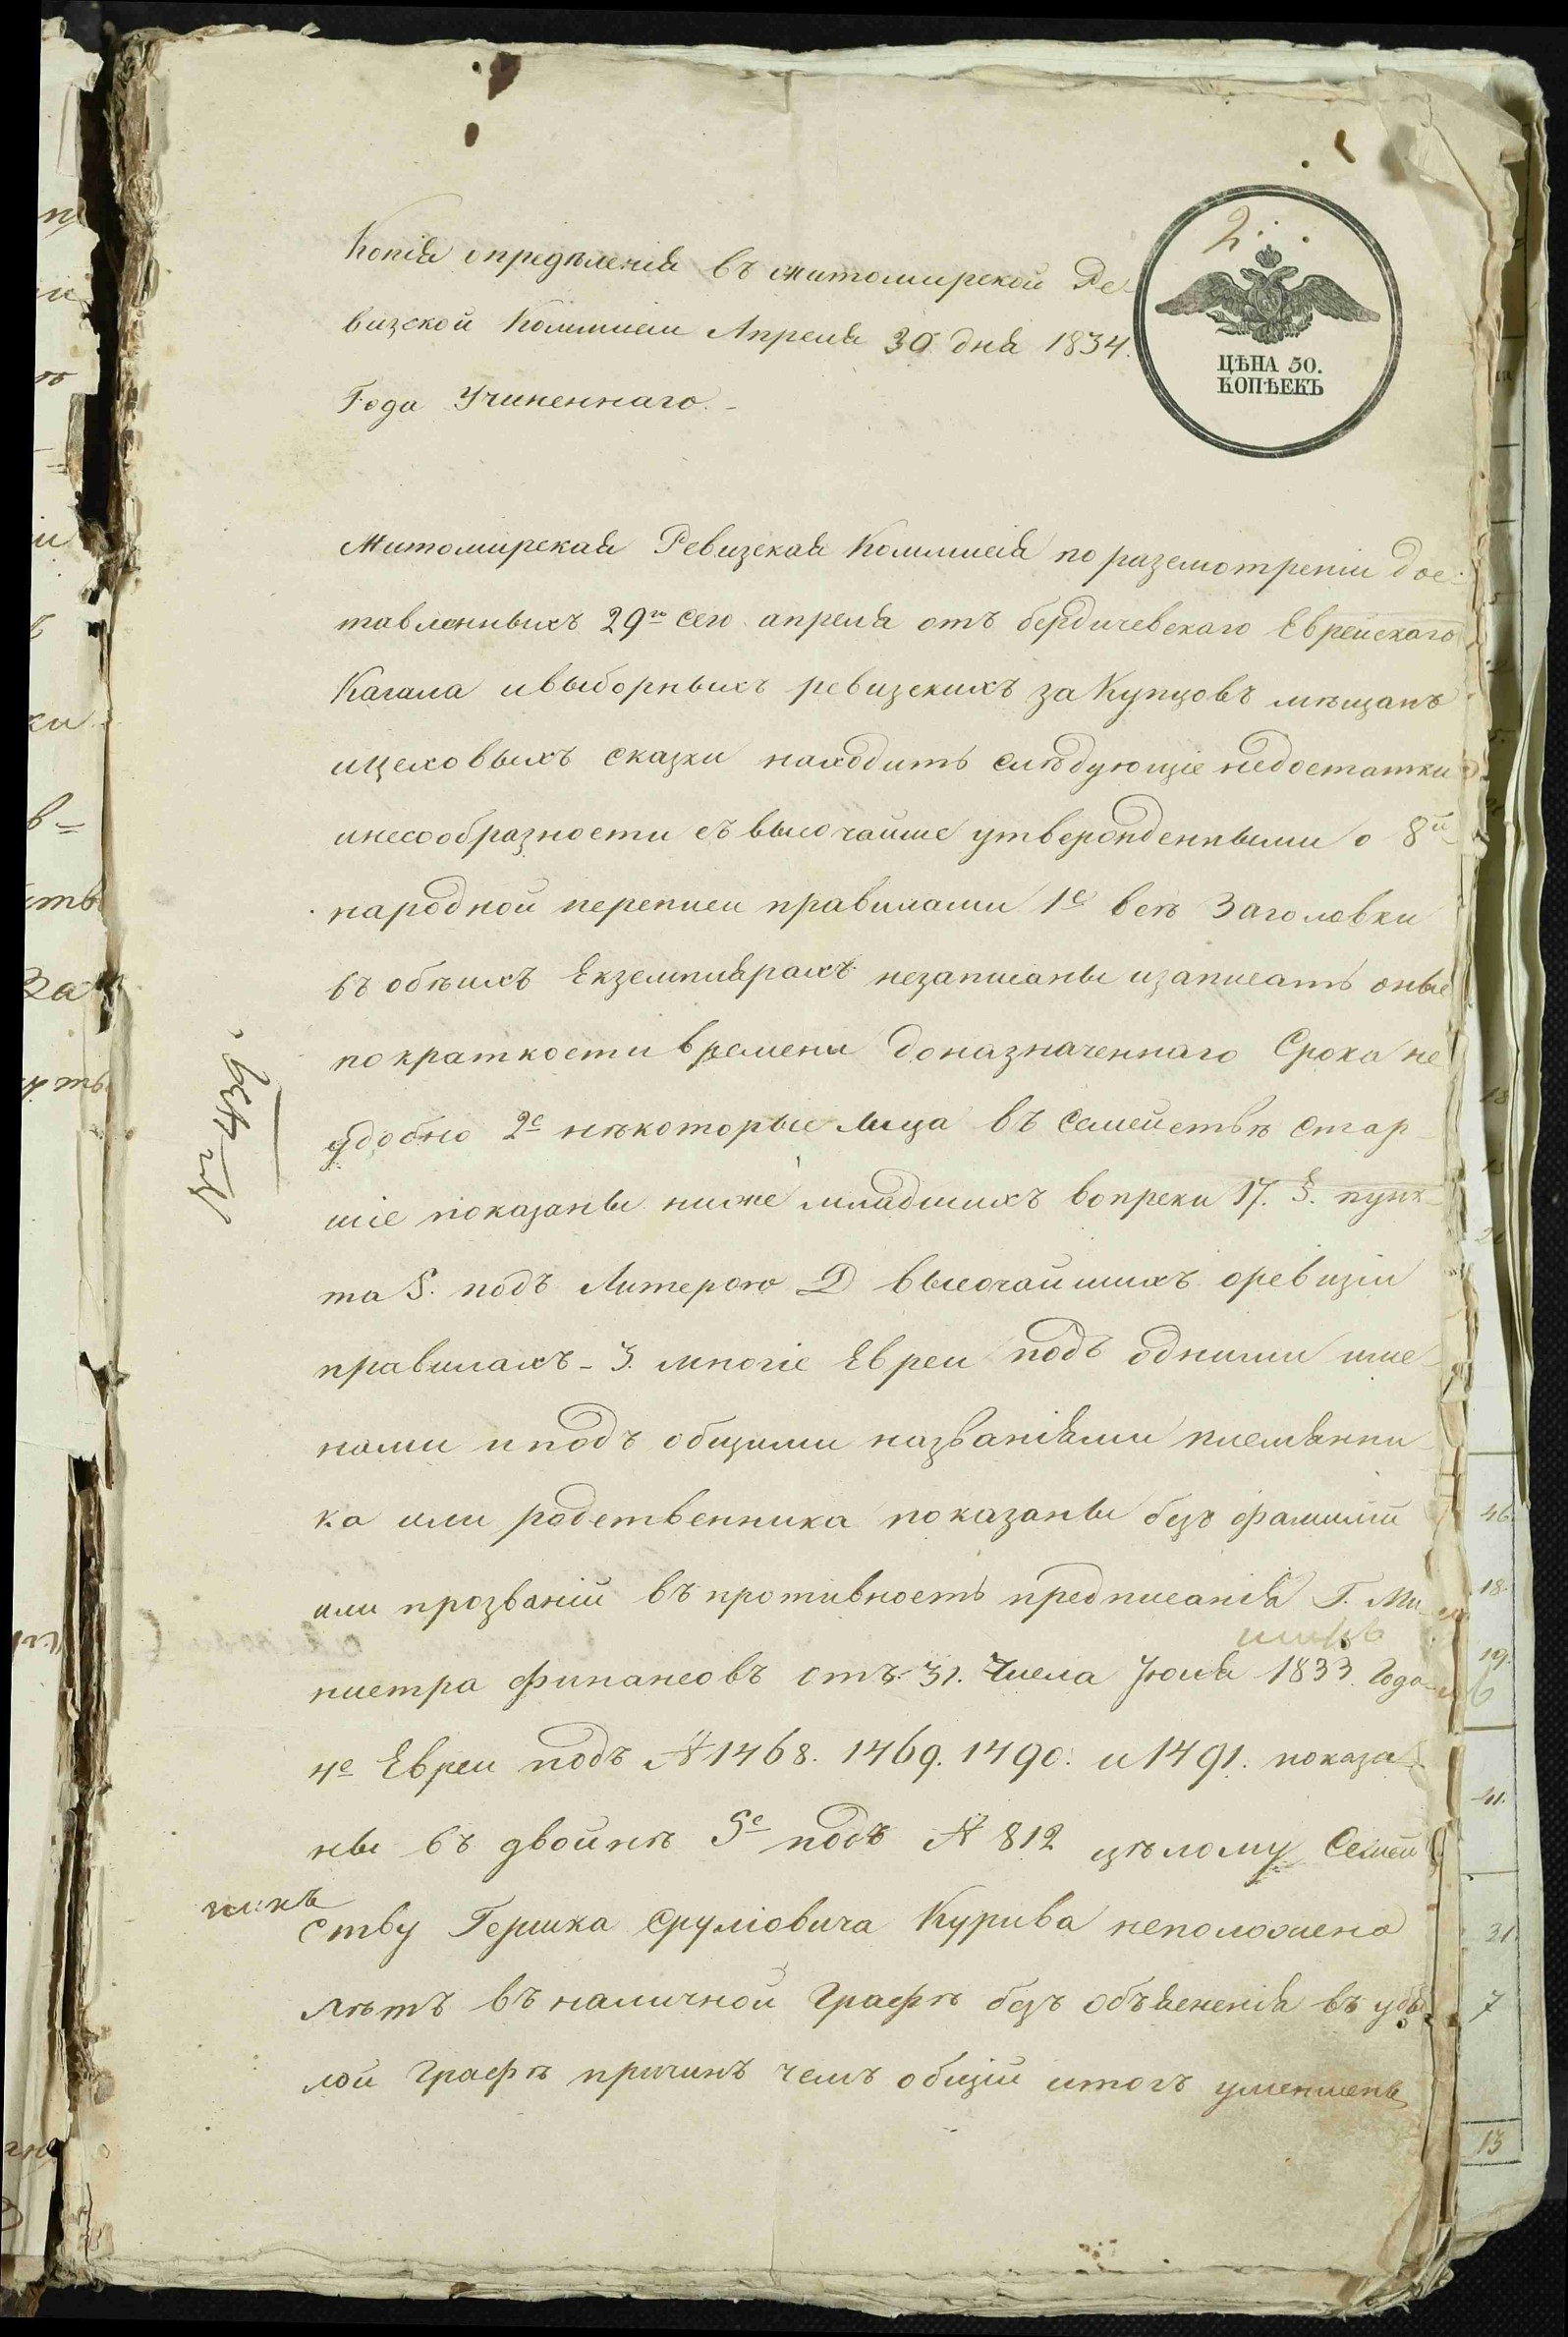 2.
ЦѢНА 50.
КОПѢЕКЪ
Копія опредѣленія въ житомирской Ре-
визской Коммисіи Апреля 30 дня 1834.
Года Учиненнаго.-
Житомирская Ревизская Коммисія по разсмотреніи дос-
тавленныхъ 29го сего апреля отъ бердичевскаго Еврейскаго
Кагала ивыборныхъ ревизскихъ за Купцовъ мѣщанъ
ицеховыхъ сказки находитъ слѣдующіе недостатки
инесообразности съ высочайше утвержденными о 8й
народной переписи правилами 1е всѣ Заголовки
въ обѣихъ Екземплярахъ незаписаны изаписать оные
пократкости времени доназначеннаго Срока не
удобно 2е нѣкоторые лица въ семействѣ стар-
шіе показаны ниже младшихъ вопреки 17. §. пунк-
та 5. подъ Литерою D высочайшихъ оревизіи
правилахъ - 3. многіе Евреи подъ одними име-
нами и подъ общими названіями племянни-
ка или родственника показаны безъ фамилій
или прозваній въ противность предписанія Г. Ми-
нистра финансовъ отъ 31. Числа Іюля 1833. Года
4е Евреи подъ № 1468. 1469. 1490. и 1491. показа-
ны въ двойнѣ 5е подъ № 812 цѣлому Семей
ству Гершка Срулiовича Курива неположено
лѣтъ въ наличной Графѣ безъ объясненія въ убы
лой Графѣ причинъ чемъ общій итогъ уменшенъ